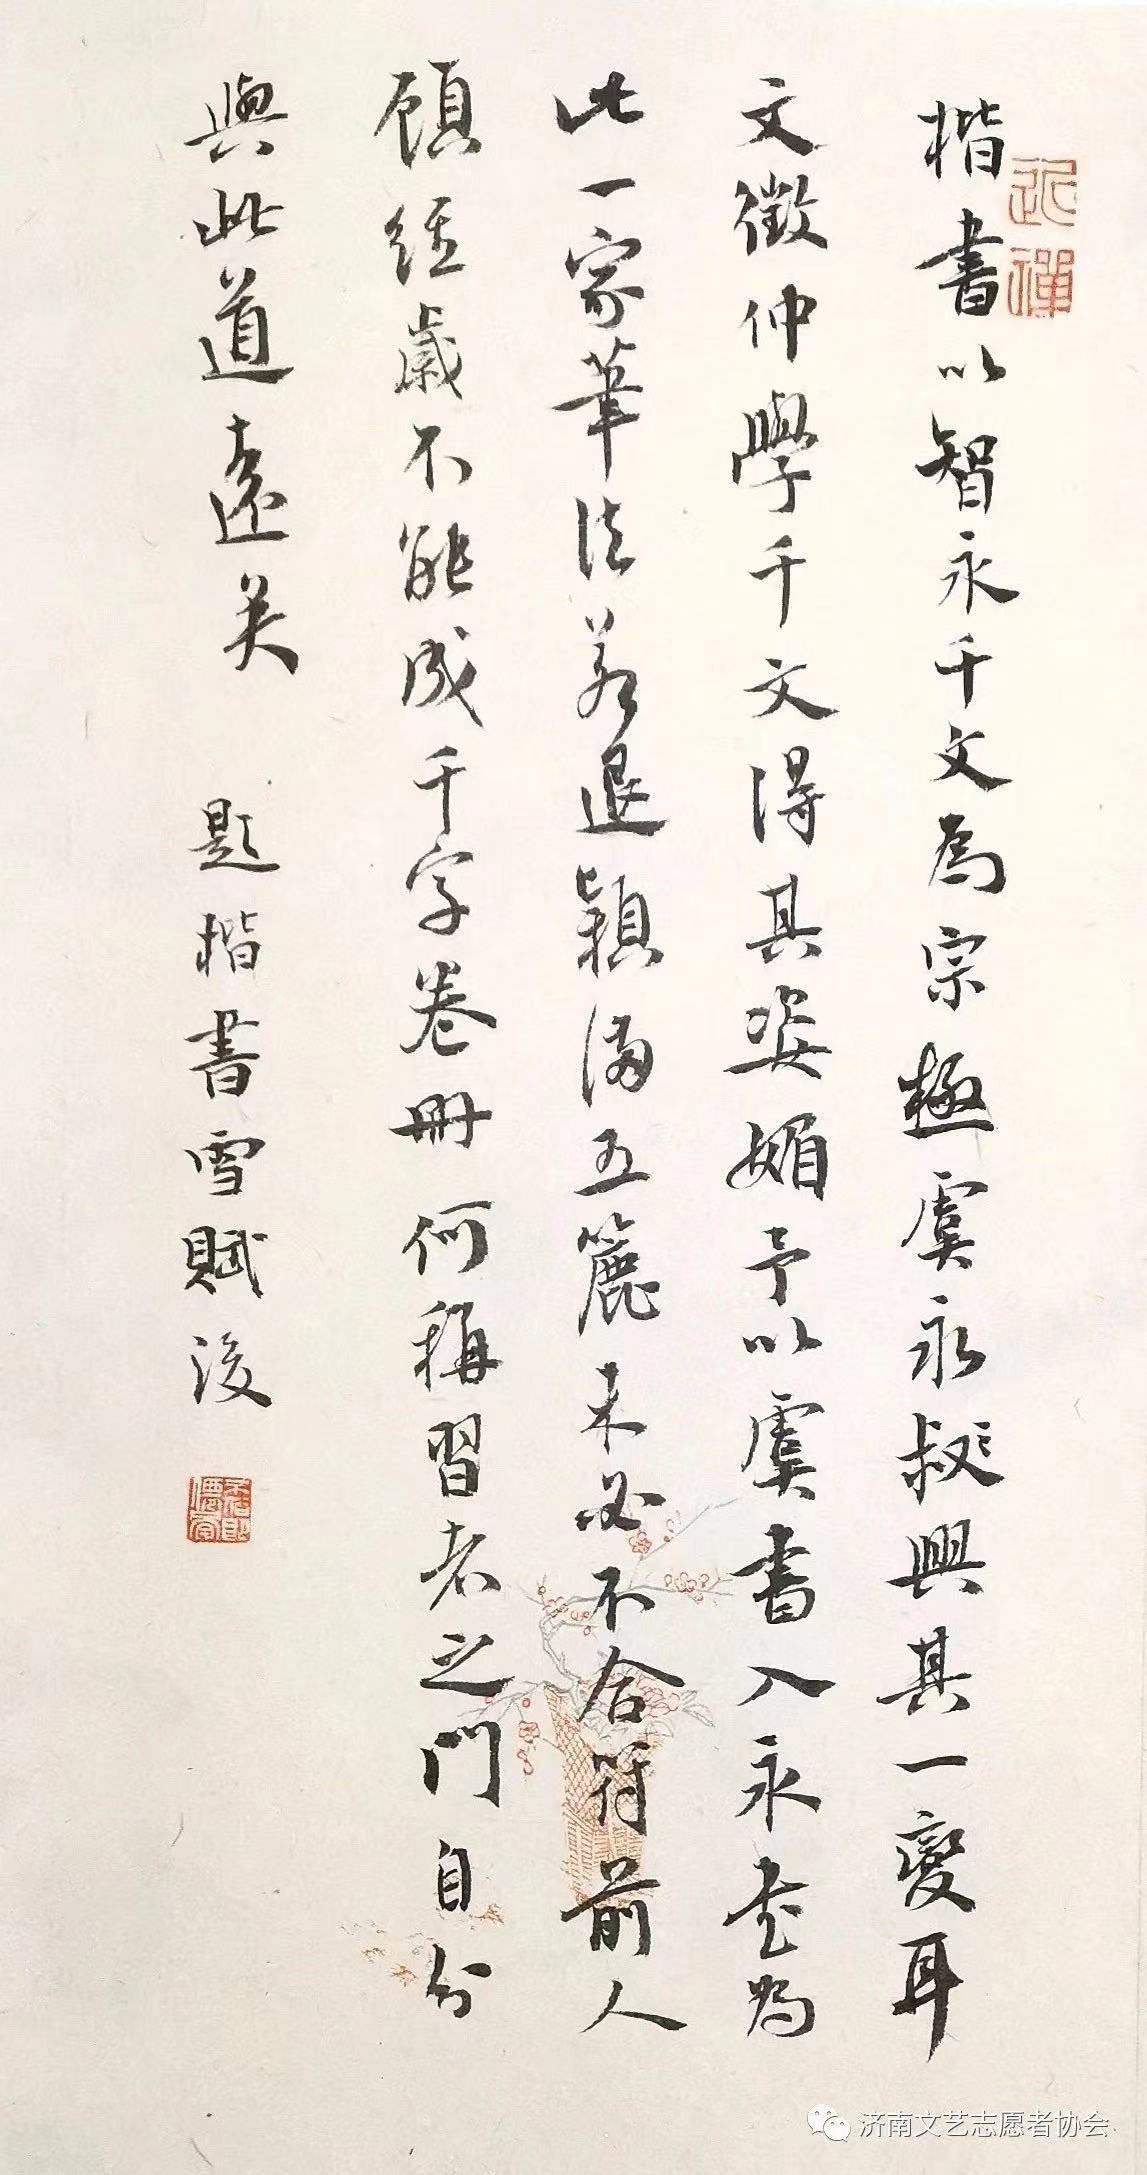 楷書以智永千文為宗極虞永興其一變耳
文徵仲學千文得其姿媚予以虞書入永書為
此一家筆法若退穎滿五簏未必不合符前人
顧經歲不能成千字卷冊何稱習者之門自分
與此道遠矣 題楷書雪賦後
近禪
济南文艺志愿者协会